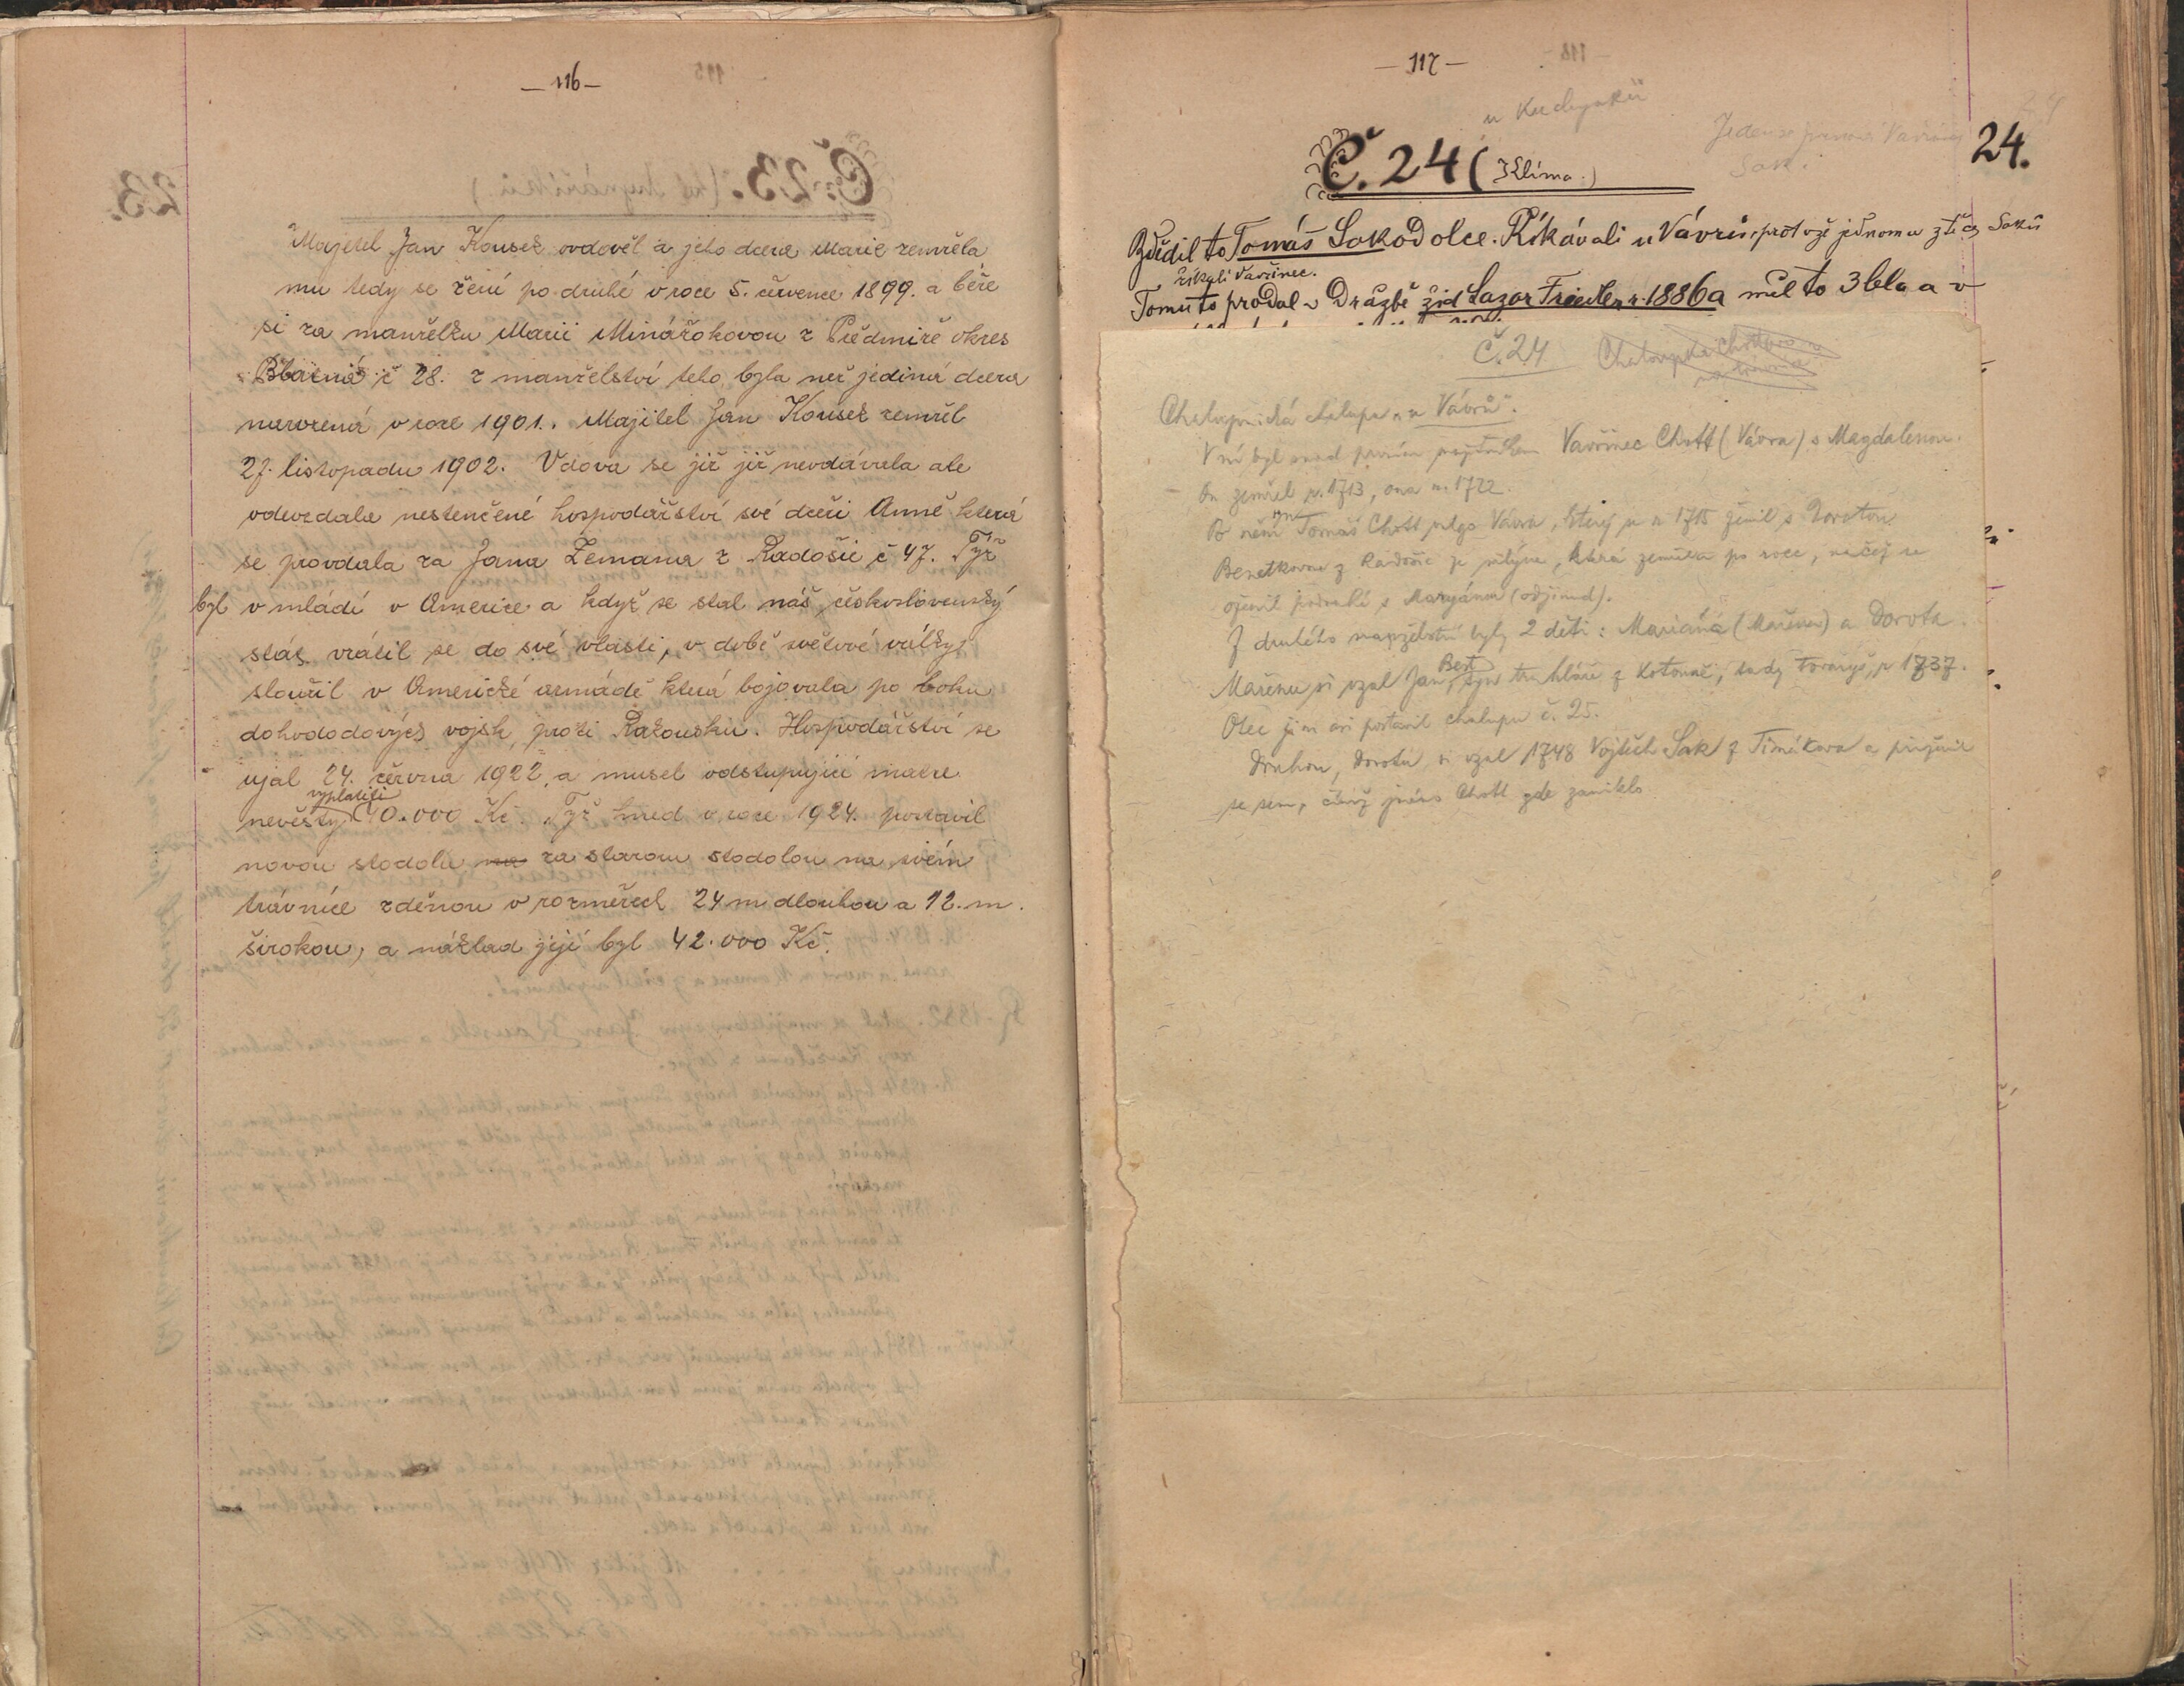 — 116 —
Majetel Jan Kousek ovdověl a jeho dcera Marie zemřela
mu tedy se žení po druhé v roce 5. července 1899. a béře
si za manželku Marii Minářokovou z Předmíře okres
Blatná č 28. z manželství toho byla než jediná dcera
narozená v roce 1901. Majitel Jan Kousek zemřel
27. listopadu 1902. Vdova se již již nevdávala ale
odevzdala nestenčené hospodářství své dceři Anně která
se provdala za Jana Zemana z Radošic č 47. Týž
byl v mládí v Americe a když se stal náš československý
stát vrátil se do své vlasti, v době světové války
sloužil v Americké armádě která bojovala po boku
dohododových vojsk proti Rakousku. Hospodářství se
ujal 24. června 1922 a musel odstupující matce
vyplatiti
nevěsty 40.000 Kč. Týž hned v roce 1924. postavil
novou stodolu na za starou stodolou na svém
trávníce zděnou v rozměrech 24 m dlouhou a 12. m.
širokou, a náklad její byl 42.000 Kč.
— 117 —
Jeden
Sak.
24.
Č. 24 (Klíma.)
Zdědil to Tomáš Sak od otce. Říkávali u Vávrů, protože jednomu z těch Saků
říkali Vavřinec.
Tomuto prodal v Dražbě žid Lazar r. 1886 a měl to 3 léta a v
Č. 24
Chalupnická chalupa „u Vávrů".
V ní byl snad prvním Vavřinec Chott (Vávra) s Magdalenou.
On zemřel r. 1713, ona r. 1722.
syn
Po něm Tomáš Chott nebo Vávra, který se r. 1715 ženil s Dorotou
Benetkovou z Radošic ze mlýna, která zemřela po roce, načež se
oženil podruhé s Maryánou (odjinud).
Z druhého manželství byly 2 děti: Mariána (Mařena) a Dorota.
Mařenu si vzal Jan, syn truhláře z Kotouně, tudy tovaryš, r 1737.
Otec jim asi postavil chalupu č. 25.
Druhou, Dorotu si vzal 1748 Vojtěch Sak z Tčmíkova a přiženil
se sem, čímž jméno Chott zde zaniklo.